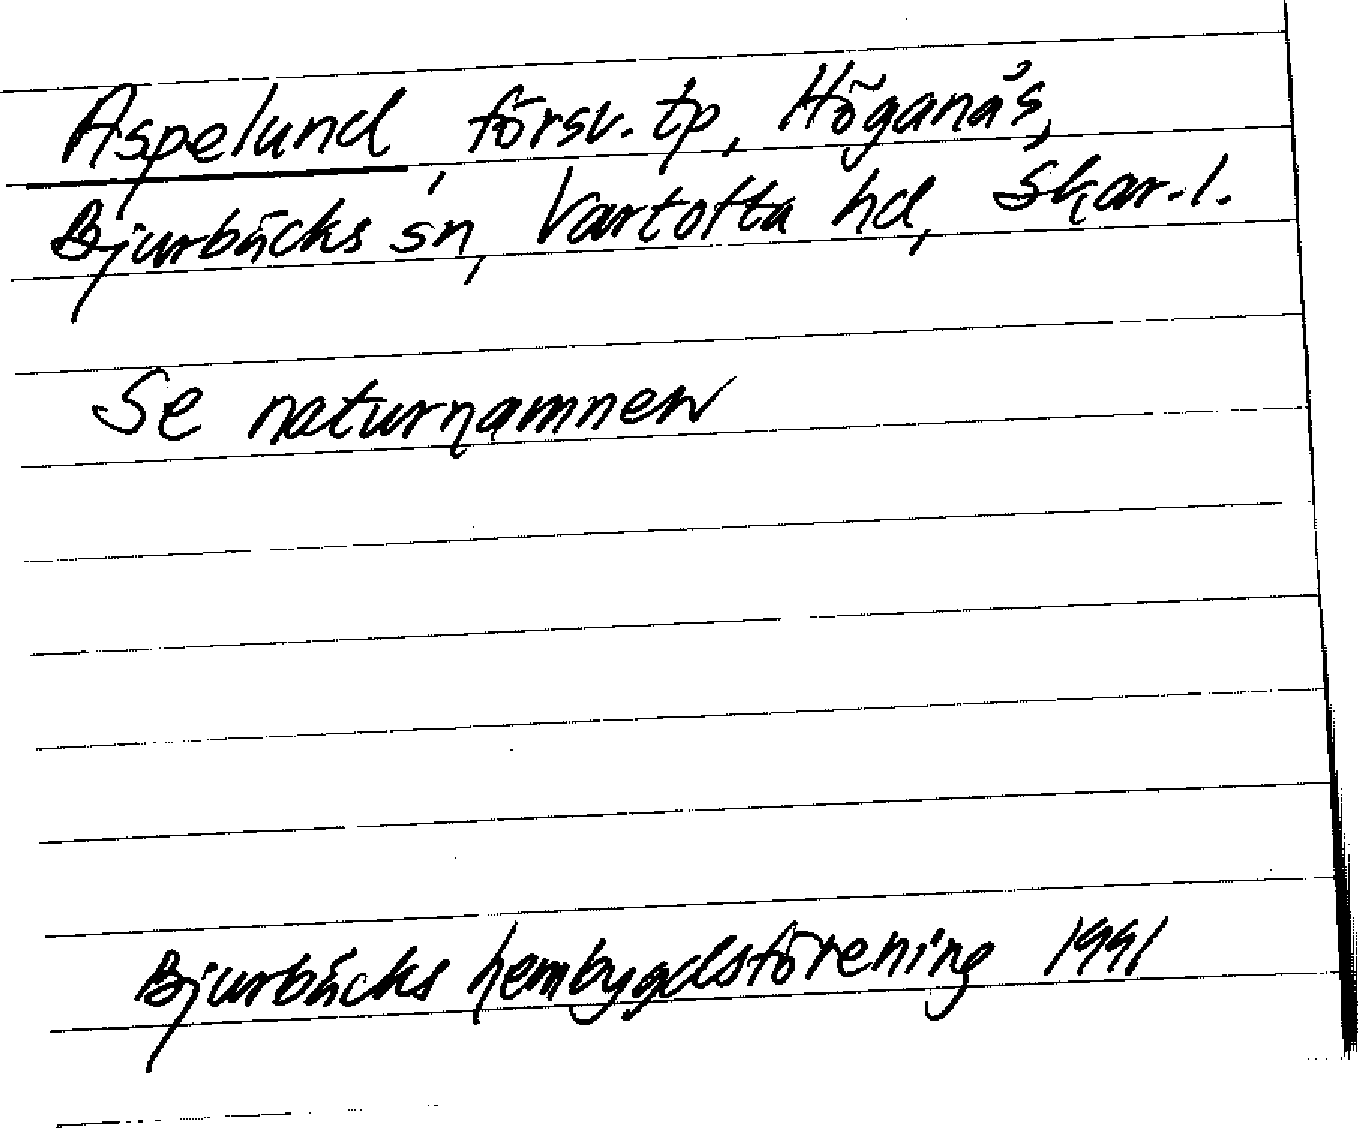 Aspelund, försv. tp, Höganäs,
Bjurbäcks sn, Vartofta hd, Skar.l.
Se naturnamnen
Bjurbäcks hembygdsförening 1991